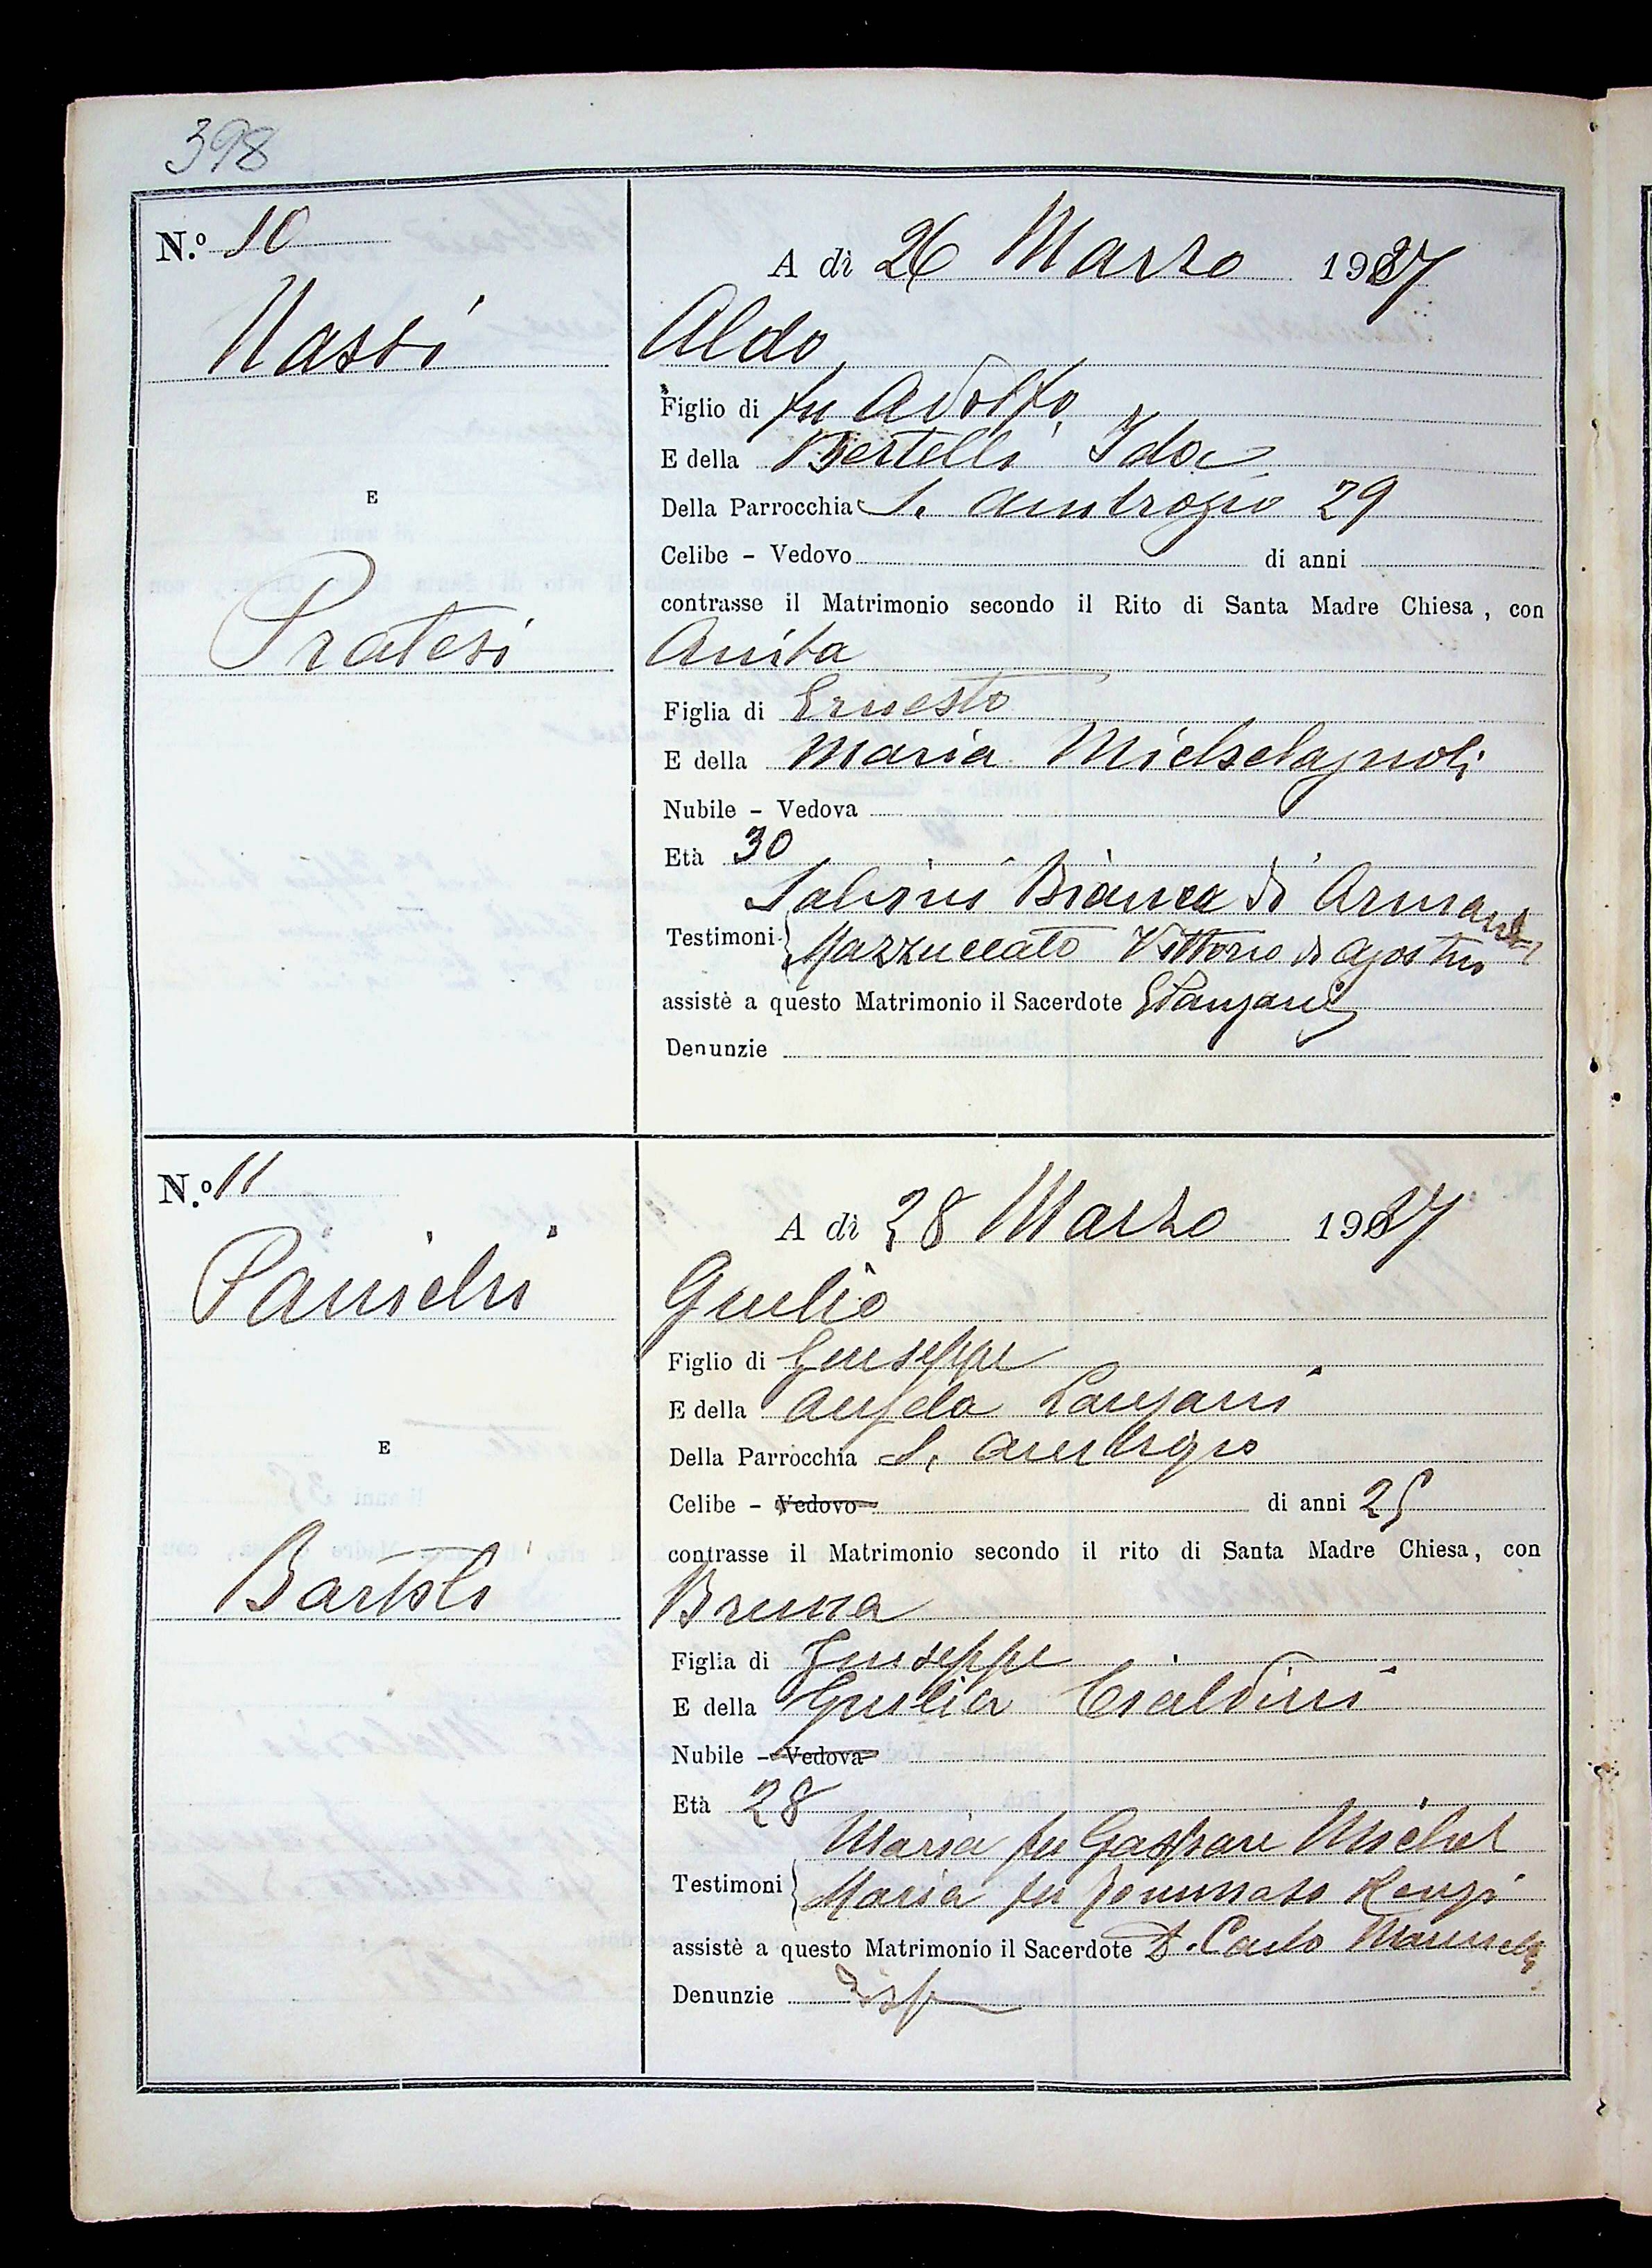 398
N.º 10
A dì 26 Marzo 1937
Nassi
Aldo
Figlio di fu Adolfo
E della Bertelli Ida
Della Parrocchia S. Ambrogio 29
E
Celibe - Vedovo di anni
contrasse il Matrimonio secondo il Rito di Santa Madre Chiesa, con
Pratesi
Anita
Figlia di Ernesto
E della Maria Michelagnoli
Nubile - Vedova
Età 30
Salvini Bianca di Armando
Testimoni Mazzuccato Vittorio di Agostino
assistè a questo Matrimonio il Sacerdote
Denunzie
N.º 11
A dì 28 Marzo 1937
Panichi
Giulio
Figlio di Giuseppe
E della Angela Lanzani
Della Parrocchia S. Ambrogio
E
Celibe - Vedovo di anni 25
contrasse il Matrimonio secondo il rito di Santa Madre Chiesa, con
Bartoli
Bruna
Figlia di Giuseppe
E della Giulia Cialdini
Nubile - Vedova
Età 28
Maria fu Gaspare Michel
Testimoni Maria fu Tommaso Renzi
assistè a questo Matrimonio il Sacerdote D. Carlo
Denunzie